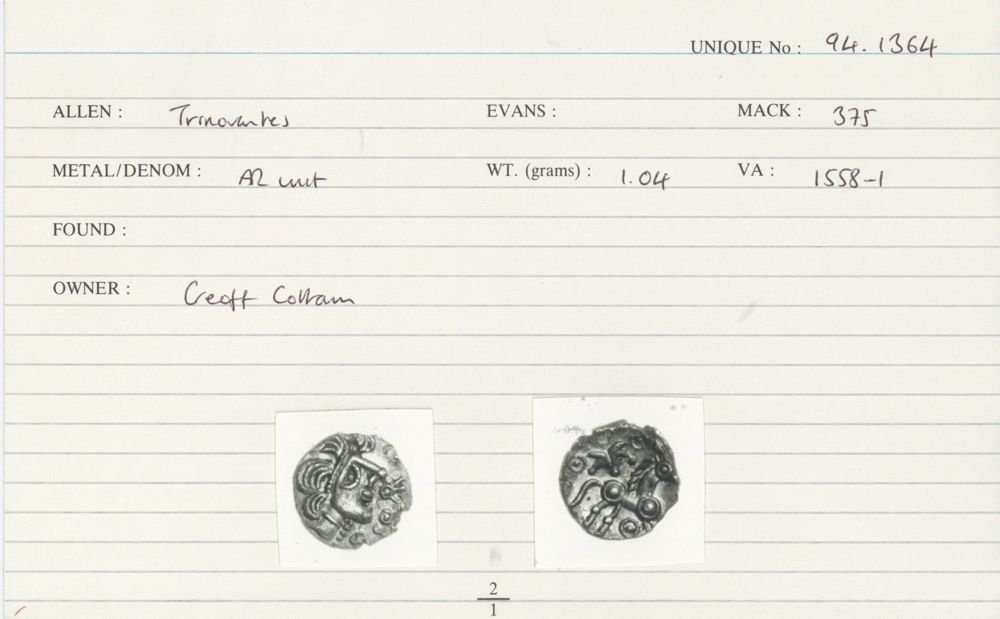 UNIQUE No : 94.1364
ALLEN : Trinovantes EVANS : MACK : 375
METAL/DENOM : AR unit WT. (grams) : 1.04 VA : 1558-1
FOUND :
OWNER : Geoff Cottam
2
1